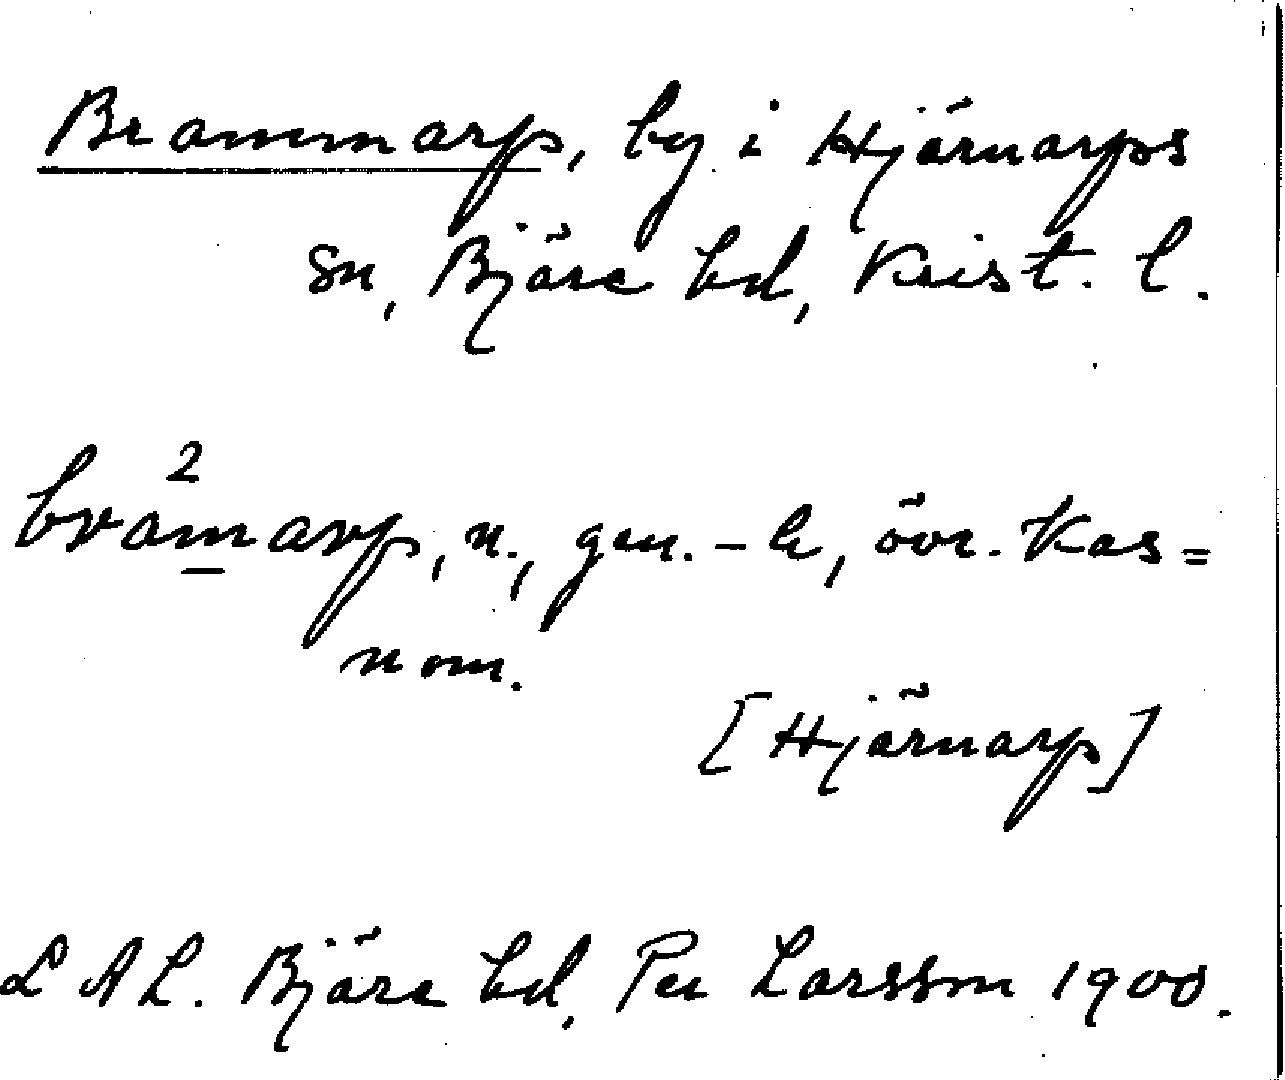 Brammarp, by i Hjärnarps
sn, Bjäre hd, Krist. l.
bra²marp, n., gen. -a, övr. kas =
nom.
[Hjärnarp]
LAL. Bjäre hd, Per Larsson 1900.